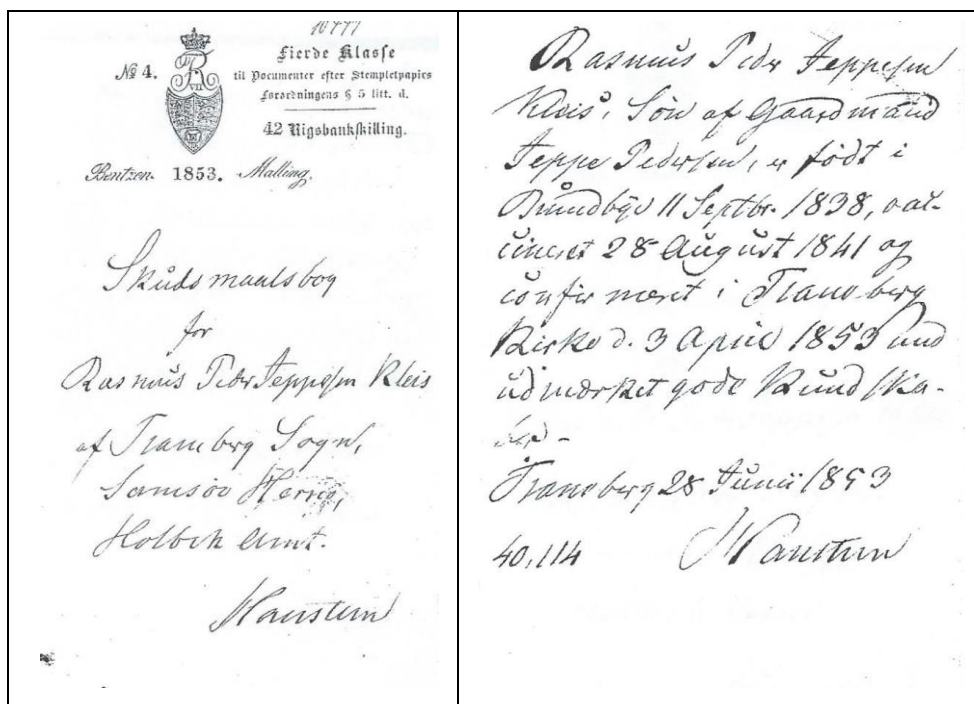 10777
№ 4.
Fierde Klasse
til Documenter efter Stempletpapirs
Forordningens § 5 litt. d.
42 Rigsbankskilling.
VII
Bentzen. 1853. Malling.
Skudsmaalsbog
for
Rasmus Peder Jeppesen Kleis
af Tranebierg Sogn,
Samsøe Herred,
Holbek Amt.
Rasmus Peder Jeppesen
Kleis, Søn af Gaardmand
Jeppe Pedersen, er født i
Brundbye 11 Septbr. 1838, vac-
cineret 28 August 1841 og
confirmeret i Traneberg
Kirke d. 3 April 1853 med
udmærket gode Kundska-
ber.
Traneberg 28 Junii 1853
40,114